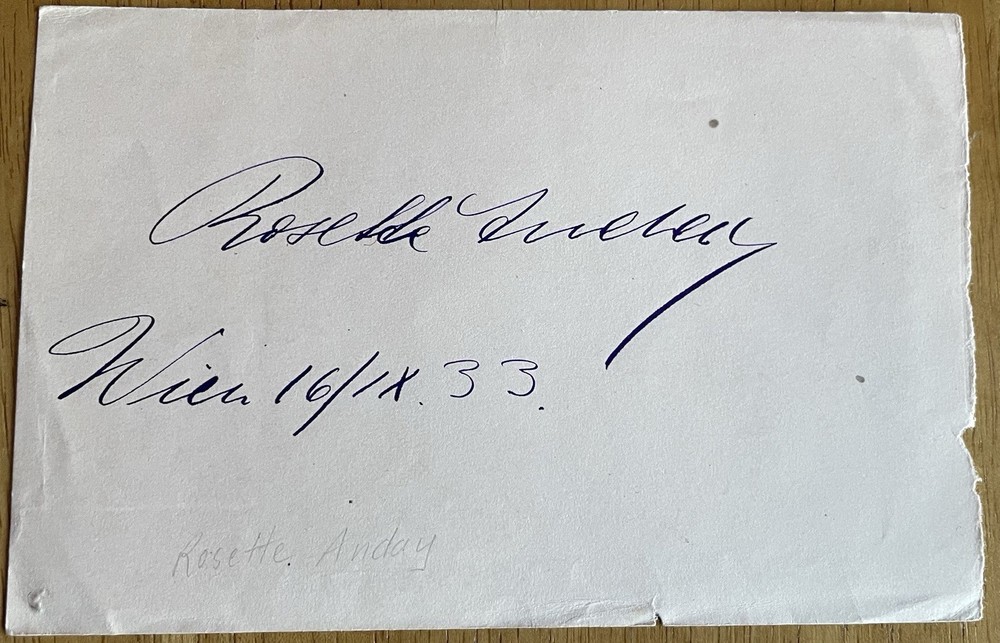 Rosette Anday
Wien 16/IX. 33.
Rosette Anday